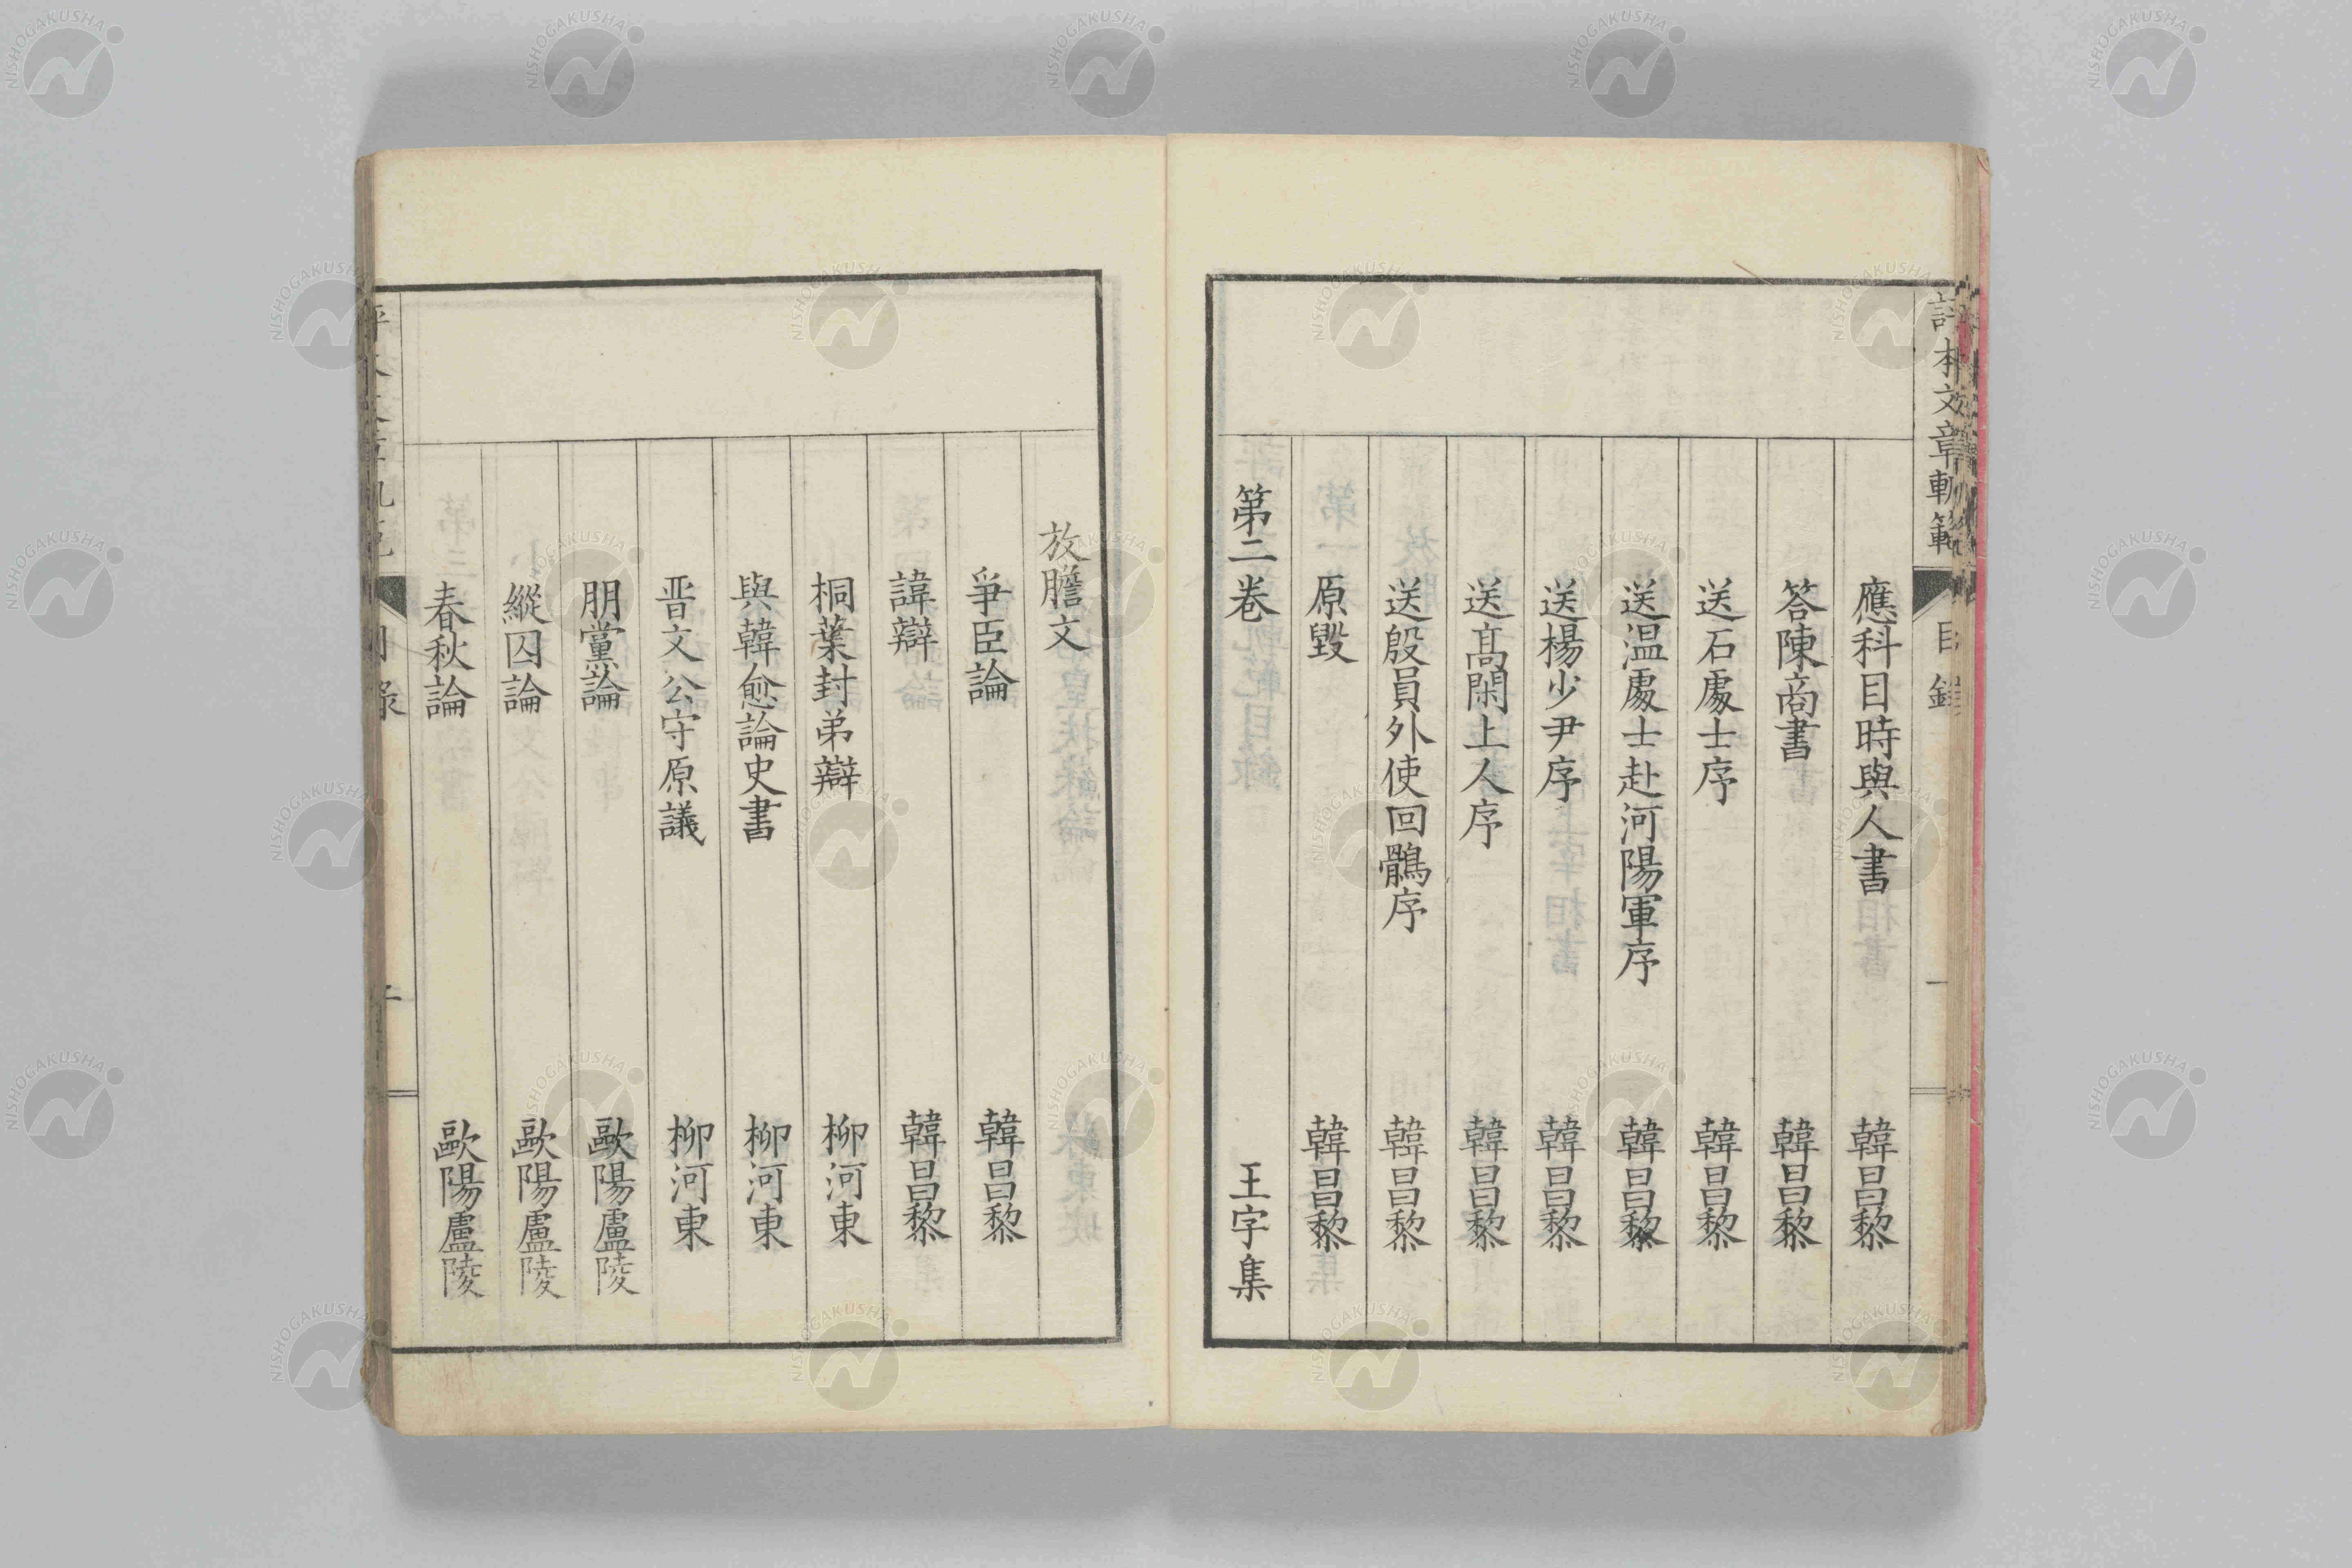 評本文章軌範 目錄 一
應科目時與人書 韓昌黎
答陳商書 韓昌黎
送石處士序 韓昌黎
送温處士赴河陽軍序 韓昌黎
送楊少尹序 韓昌黎
送髙閑上人序 韓昌黎
送殷員外使回鶻序 韓昌黎
原毀 韓昌黎
第二卷 王字集
放膽文
爭臣論 韓昌黎
諱辯 韓昌黎
桐葉封弟辯 柳河東
與韓愈論史書 柳河東
晋文公守原議 柳河東
朋黨論 歐陽盧陵
縱囚論 歐陽盧陵
春秋論 歐陽盧陵
NISHOGAKUSHA